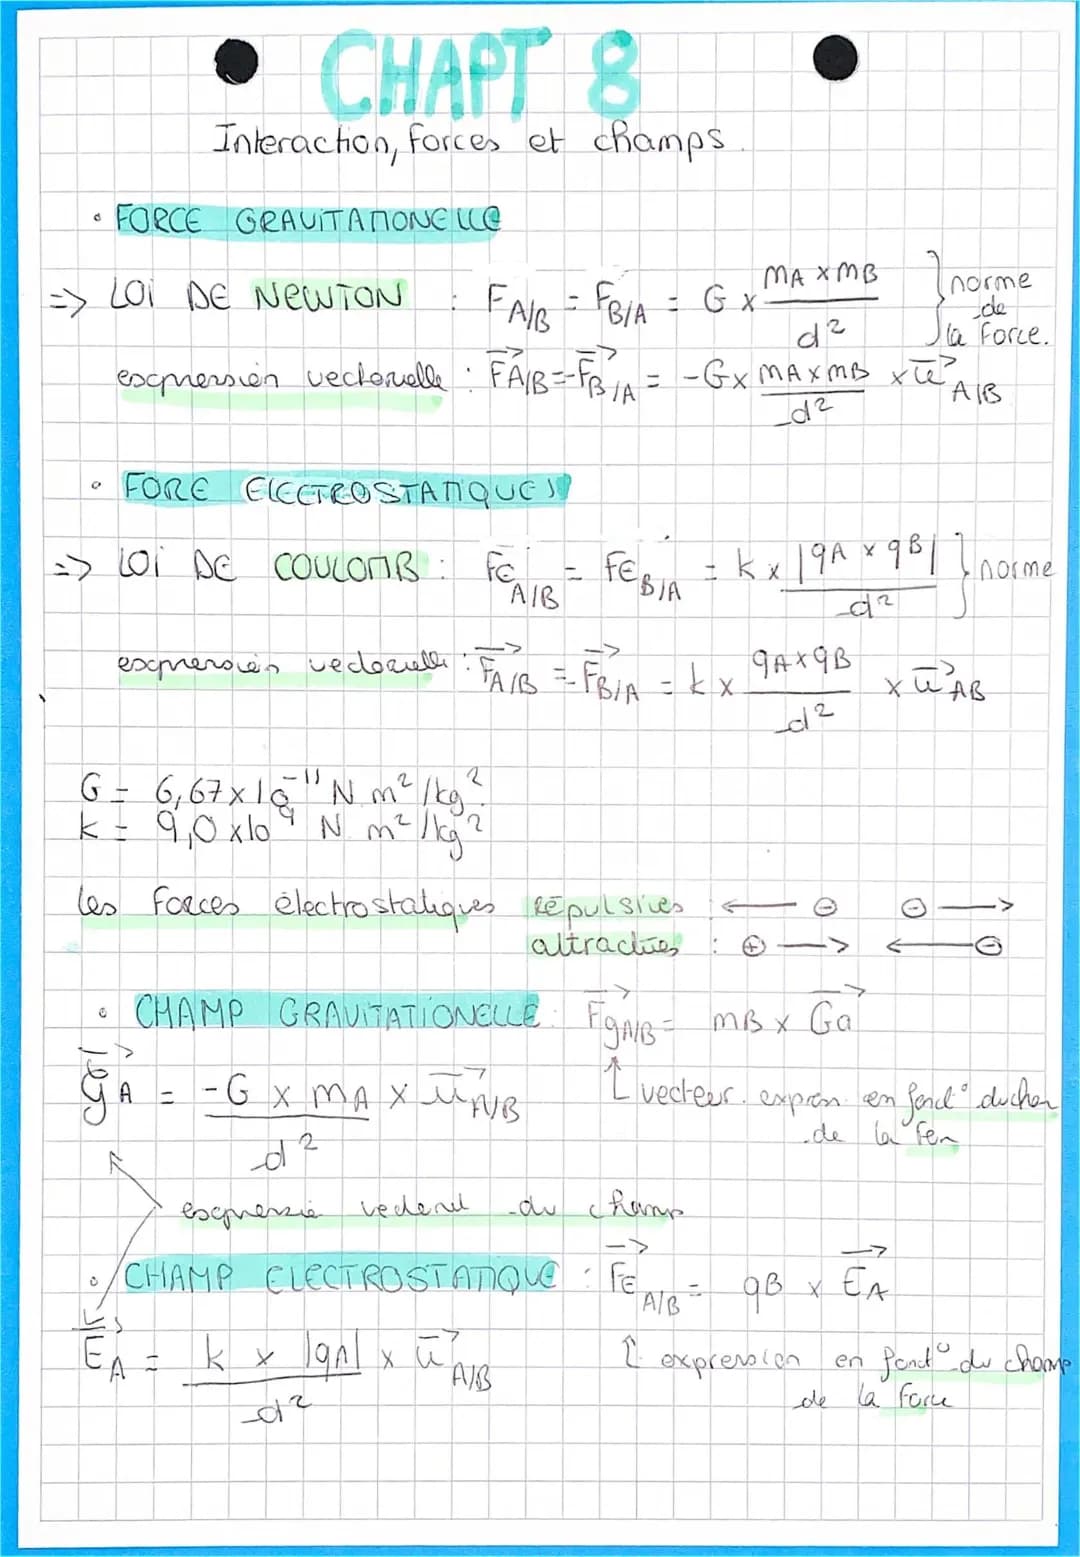 CHAPT 8
Interaction, forces et champs.
• FORCE GRAVITATIONELLE
=> LOI DE NEWTON : F A/B = F B/A = G x mA x mB / d² } norme de la force.
expression vectorielle : F⃗A/B = -F⃗B/A = -G x mA x mB / d² x u⃗ A/B
• FORE ELECTROSTATIQUES
=> LOI DE COULOMB : FE A/B = FE B/A = k x |qA x qB| / d² } norme
expression vectorielle : F⃗A/B = -F⃗B/A = k x qA x qB / d² x u⃗ AB
G = 6,67 x 10⁻¹¹ N m² /kg².
k = 9,0 x 10⁹ N m² /kg²
les forces électrostatiques répulsives : ← ⊖ ⊖ →
attractives : ⊕ → ← ⊖
• CHAMP GRAVITATIONELLE : F⃗g A/B = mB x G⃗a
g⃗A = -G x mA / d² x u⃗ A/B
↑ vecteur. expression en fonct° du cham
de la
expression vectoriel du champs
• CHAMP ELECTROSTATIQUE : F⃗E A/B = qB x E⃗A
E⃗A = k x |qA| / d² x u⃗ A/B
↑ expression en fonct° du champ
de la force